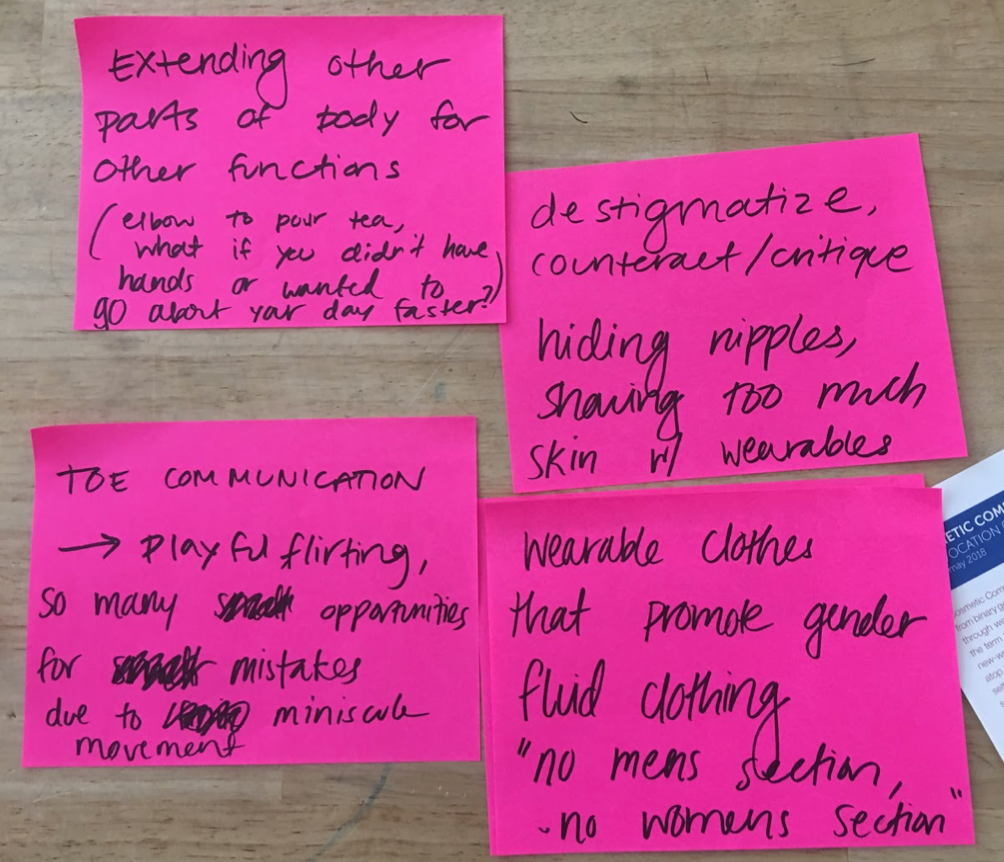 Extending other
parts of body for
other functions
(elbow to pour tea,
what if you didn't have
hands or wanted to
go about your day faster?)
destigmatize,
counteract/critique
hiding nipples,
showing too much
skin w/ wearables
TOE COMMUNICATION
→ Playful flirting,
so many opportunities
for mistakes
due to miniscule
movement
wearable clothes
that promote gender
fluid clothing
"no mens section,
no womens section"
ETIC COM
OCATION
may 2018
osmetic Com
from binary g
through we
the term
new-w
atop